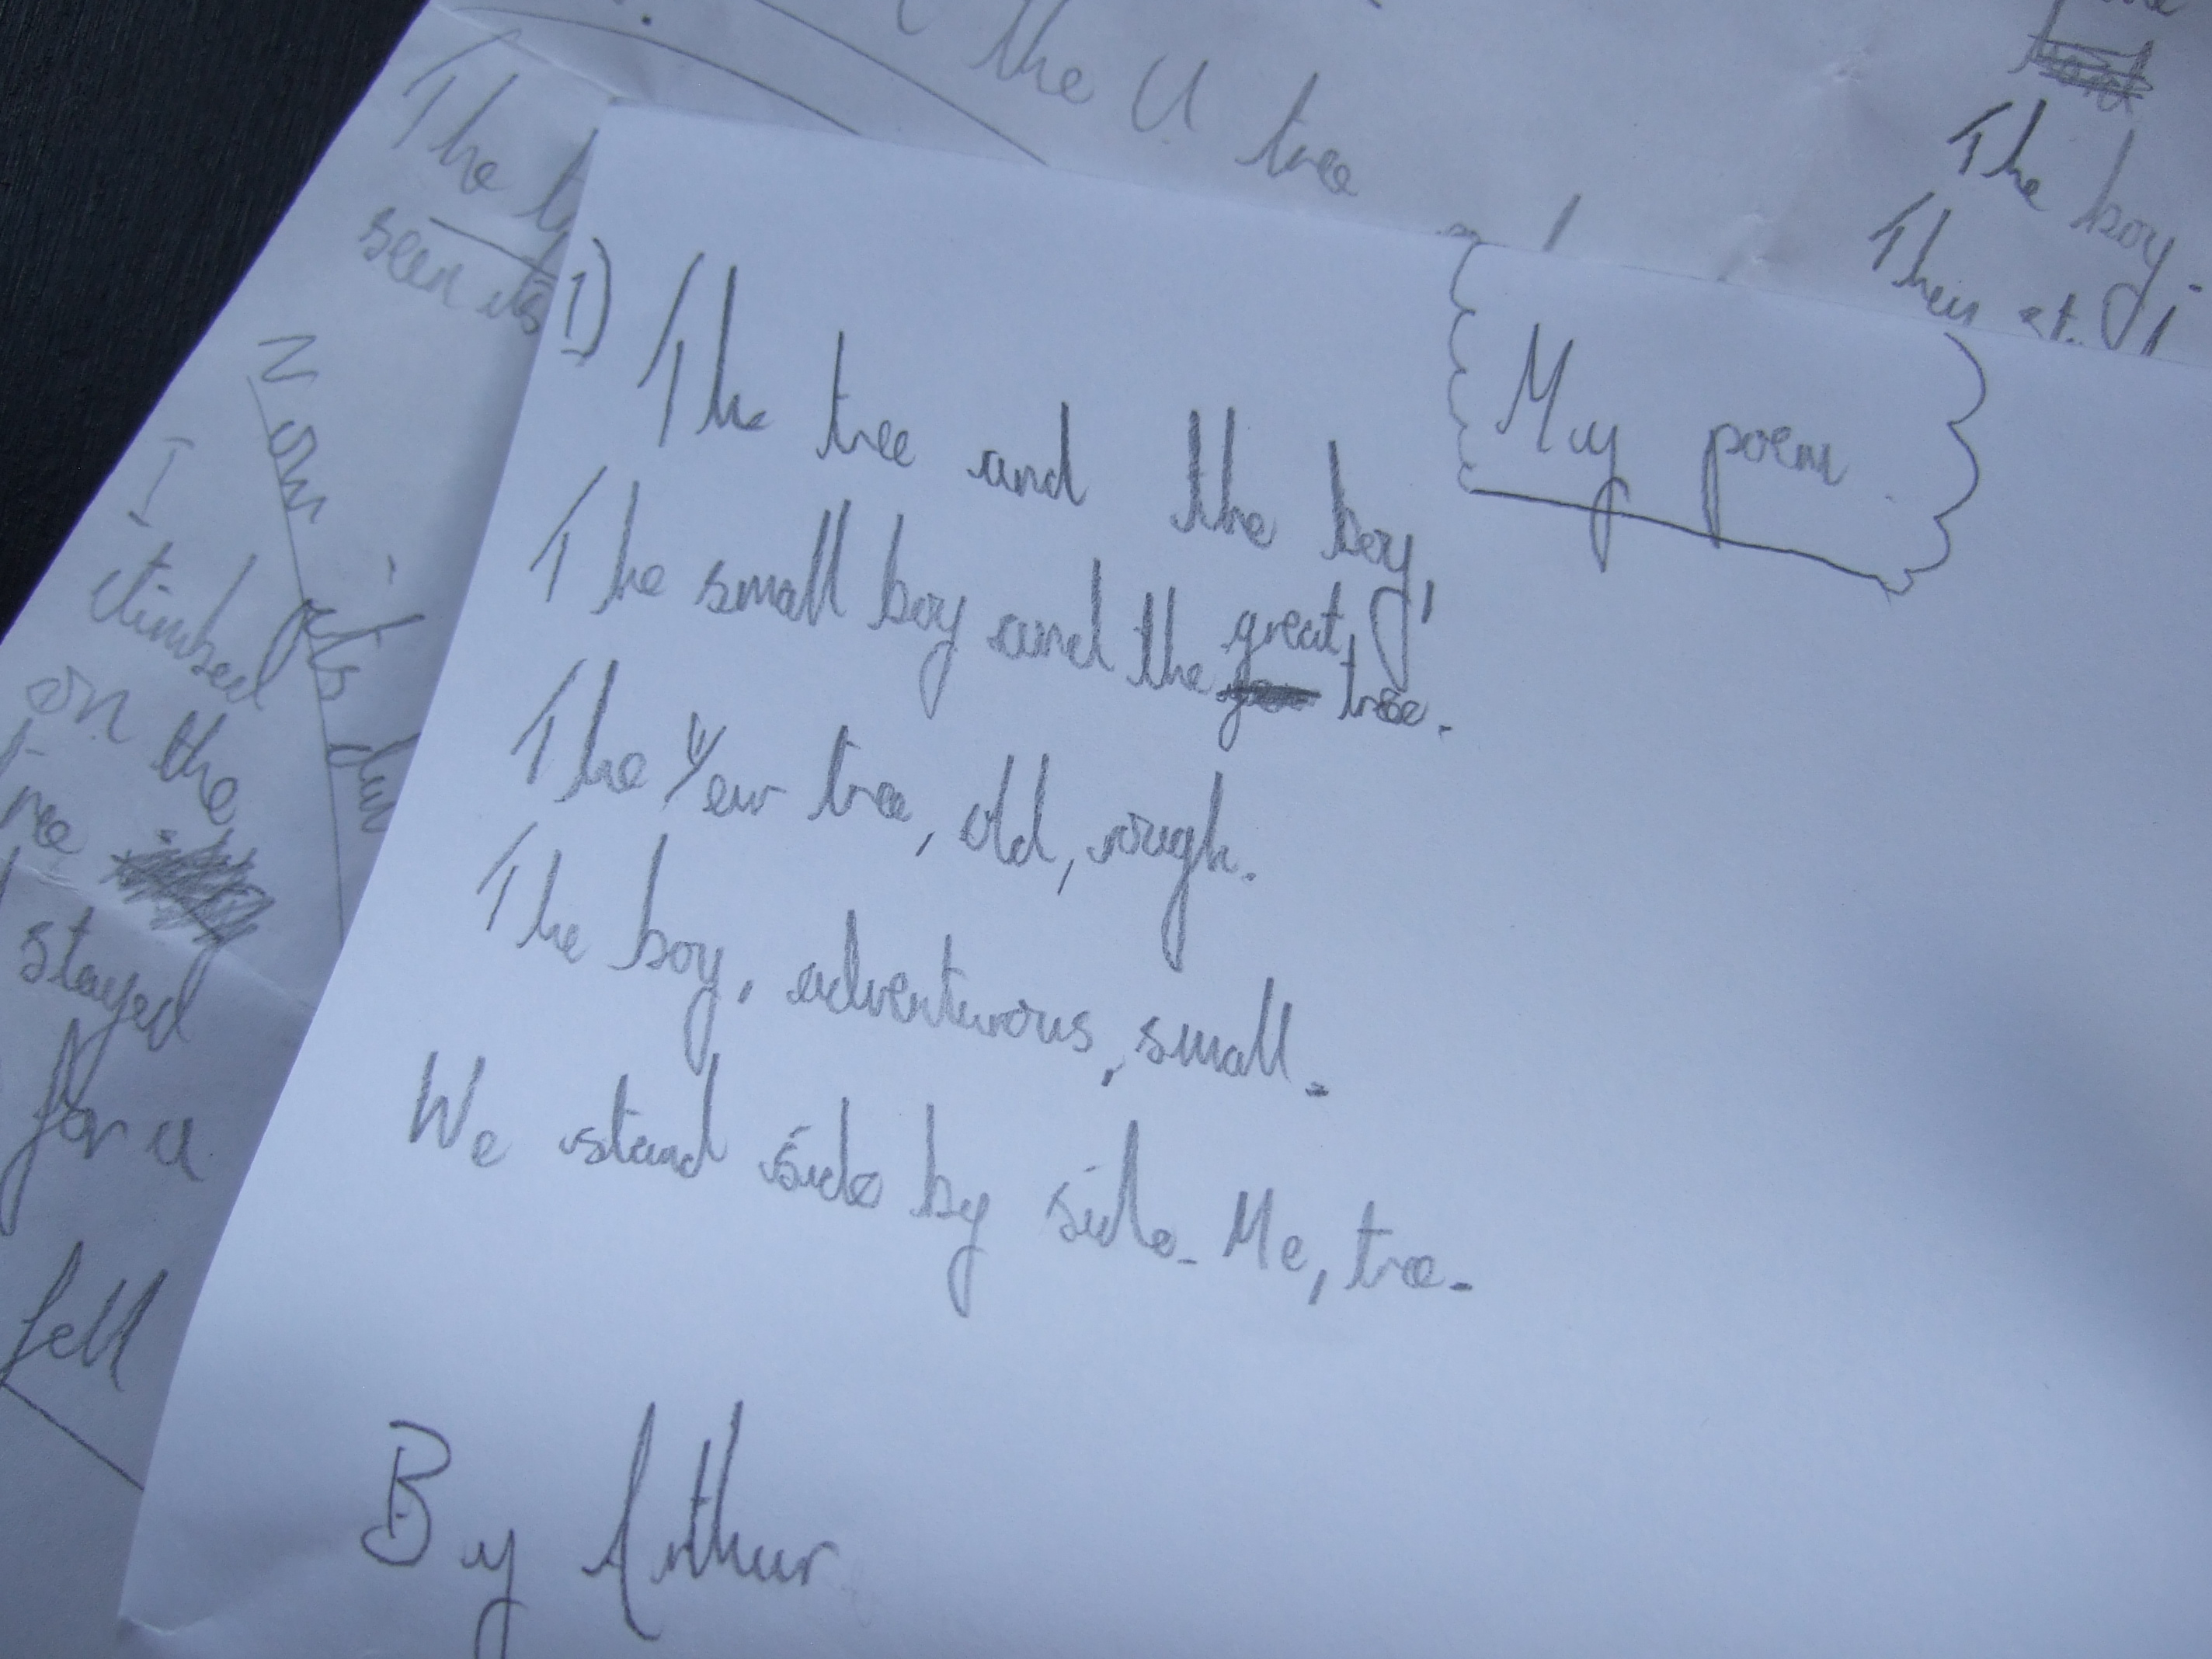 the U tree
The boy.
seen its
My poem
1) The tree and the boy,
The small boy and the great, tree.
The Yew tree, old, rough.
The boy, adventurous, small.
We stand side by side. Me, tree.
By Arthur
I
climbed
on the
stayed
for a
fell